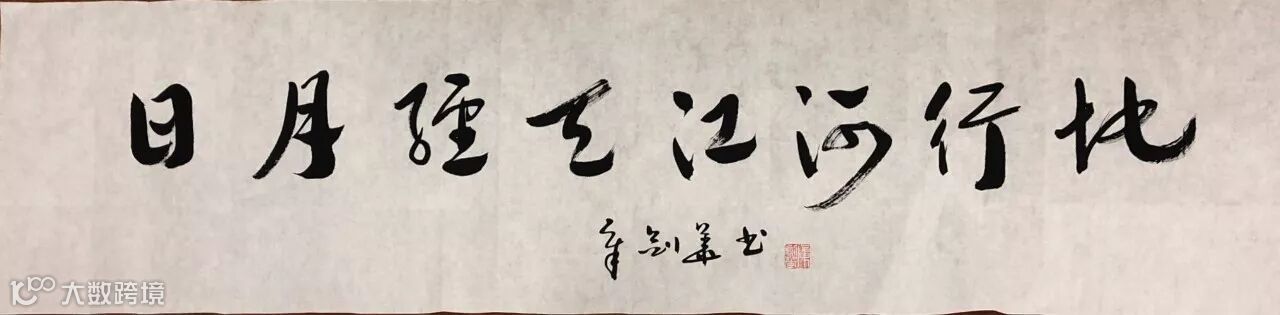 日月經天江河行地
辛剑華书
大数跨境